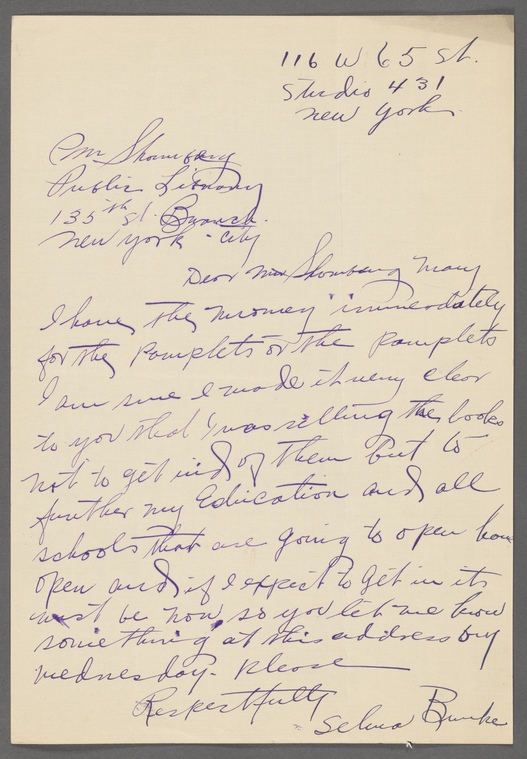 116 W 65 St.
Studio 431
New York.
Mr Shomberg
Public Library
135th St. Branch.
New York - City
Dear Mr Shomberg May
I have the money immediately
for the Pamplets or the pamplets
I am sure I made it very clear
to you that I was selling the books
not to get rid of them but to
further my Education and all
schools that are going to open have
open and if I expect to get in its
must be now, so you let me know
something at this address by
Wednesday. Please
Respectfully
Selma Burke